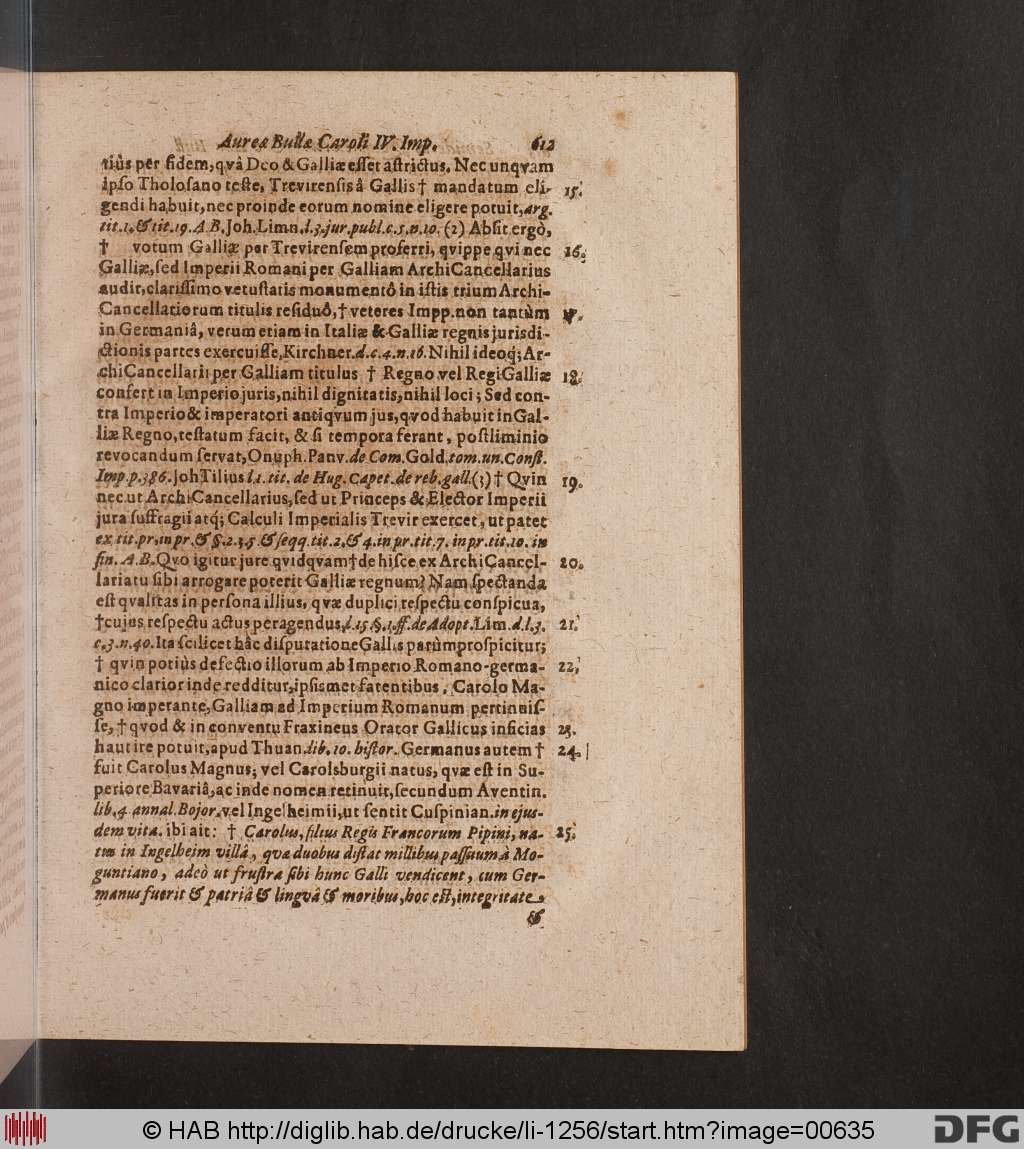 Aureæ Bullæ Caroli IV. Imp. 612
tiùs per fidem, qvâ Deo & Galliæ eſſet aſtrictus. Nec unqvam
ipſo Tholoſano teſte, Trevirenſis â Gallis † mandatum eli- 15.
gendi habuit, nec proinde eorum nomine eligere potuit, arg.
tit. 1. & tit. 19. A. B. Joh. Limn. l. 3. jur. publ. c. 5. n. 10. (2) Abſit ergò,
† votum Galliæ per Trevirenſem proferri, qvippe qvi nec 16.
Galliæ, ſed Imperii Romani per Galliam ArchiCancellarius
audit, clariſſimo vetuſtatis monumentô in iſtis trium Archi-
Cancellatiorum titulis reſiduô, † veteres Impp. non tantùm 17.
in Germaniâ, verum etiam in Italiæ & Galliæ regnis jurisdi-
ctionis partes exercuiſſe, Kirchner. d. c. 4. n. 16. Nihil ideoq́; Ar-
chiCancellarii per Galliam titulus † Regno vel Regi Galliæ 18.
confert in Imperio juris, nihil dignitatis, nihil loci; Sed con-
tra Imperio & imperatori antiqvum jus, qvod habuit in Gal-
liæ Regno, teſtatum facit, & ſi tempora ferant, poſtliminio
revocandum ſervat, Onuph. Panv. de Com. Gold. tom. un. Conſt.
Imp. p. 386. Joh Tilius l. 1. tit. de Hug. Capet. de reb. gall. (3) † Qvin 19.
nec ut ArchiCancellarius, ſed ut Princeps & Elector Imperii
jura ſuffragii atq́; Calculi Imperialis Trevir exercet, ut patet
ex tit. pr. in pr. & §. 2. 3. 5 & ſeqq. tit. 2. & 4. in pr. tit. 7. in pr. tit. 10. in
fin. A. B. Qvo igitur jure qvidqvam † de hiſce ex ArchiCancel- 20.
lariatu ſibi arrogare poterit Galliæ regnum? Nam ſpectanda
eſt qvalitas in perſona illius, qvæ duplici reſpectu conſpicua,
† cujus reſpectu actus peragendus, l. 15 §. 1. ff. de Adopt. Lim. d. l. 3. 21.
c. 3. n. 40. Ita ſcilicet hâc diſputatione Gallis parùm proſpicitur;
† qvin potiùs defectio illorum ab Imperio Romano-germa- 22.
nico clarior inde redditur, ipſismet fatentibus, Carolo Ma-
gno imperante, Galliam ad Imperium Romanum pertinuiſ-
ſe, † qvod & in conventu Fraxineus Orator Gallicus inficias 23.
haut ire potuit, apud Thuan. lib. 10. hiſtor. Germanus autem † 24.
fuit Carolus Magnus; vel Carolsburgii natus, qvæ eſt in Su-
periore Bavariâ, ac inde nomen retinuit, ſecundum Aventin.
lib. 4. annal. Bojor. vel Ingelheimii, ut ſentit Cuſpinian. in ejus-
dem vita. ibi ait: † Carolus, filius Regis Francorum Pipini, na- 25.
tus in Ingelheim villâ, quæ duobus diſtat millibus paſſuum à Mo-
guntiano, adeò ut fruſtra ſibi hunc Galli vendicent, cum Ger-
manus fuerit & patriâ & lingvâ & moribus, hoc eſt, integritate
&
© HAB http://diglib.hab.de/drucke/li-1256/start.htm?image=00635
DFG